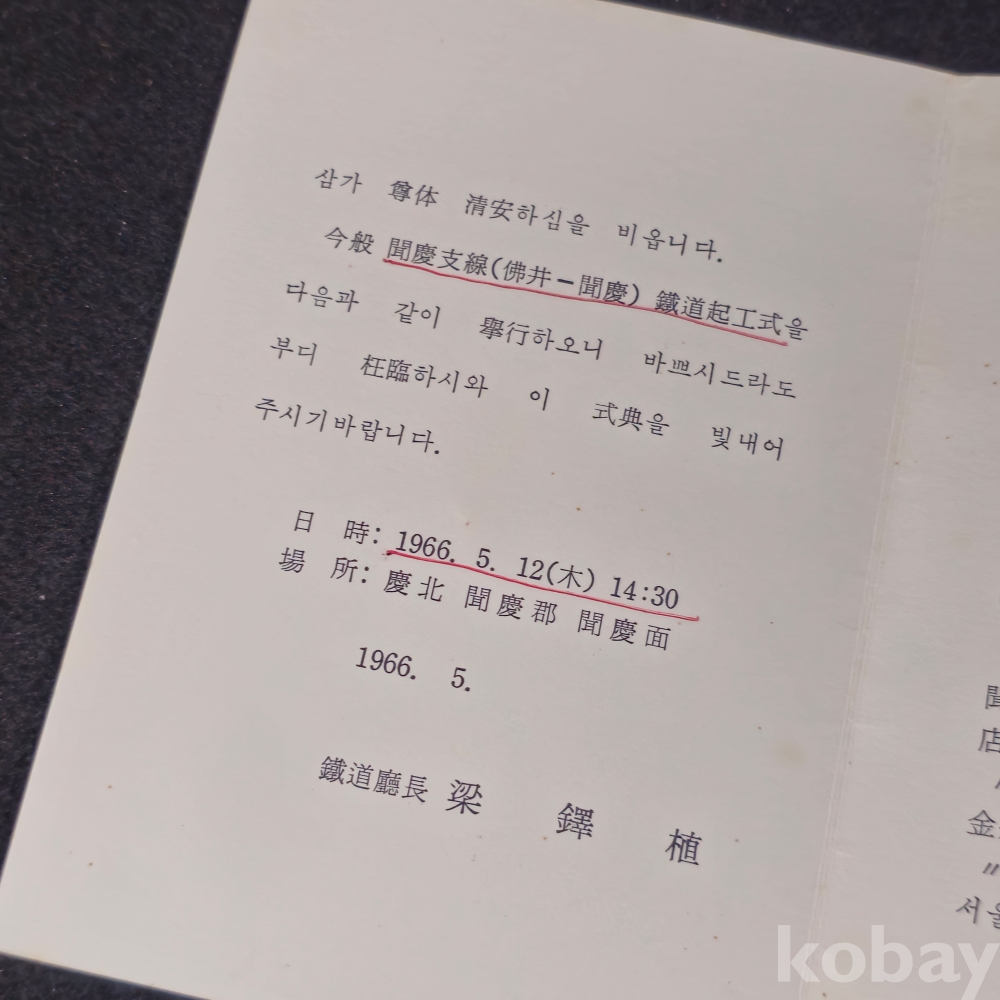 삼가 尊体 清安하심을 비옵니다.
今般 聞慶支線(佛井-聞慶) 鐵道起工式을
다음과 같이 擧行하오니 바쁘시드라도
부디 枉臨하시와 이 式典을 빛내어
주시기바랍니다.
日 時: 1966. 5. 12(木) 14:30
場 所: 慶北 聞慶郡 聞慶面
1966. 5.
鐵道廳長 梁 鐸 植
聞
店
〃
金
〃
서울
kobay